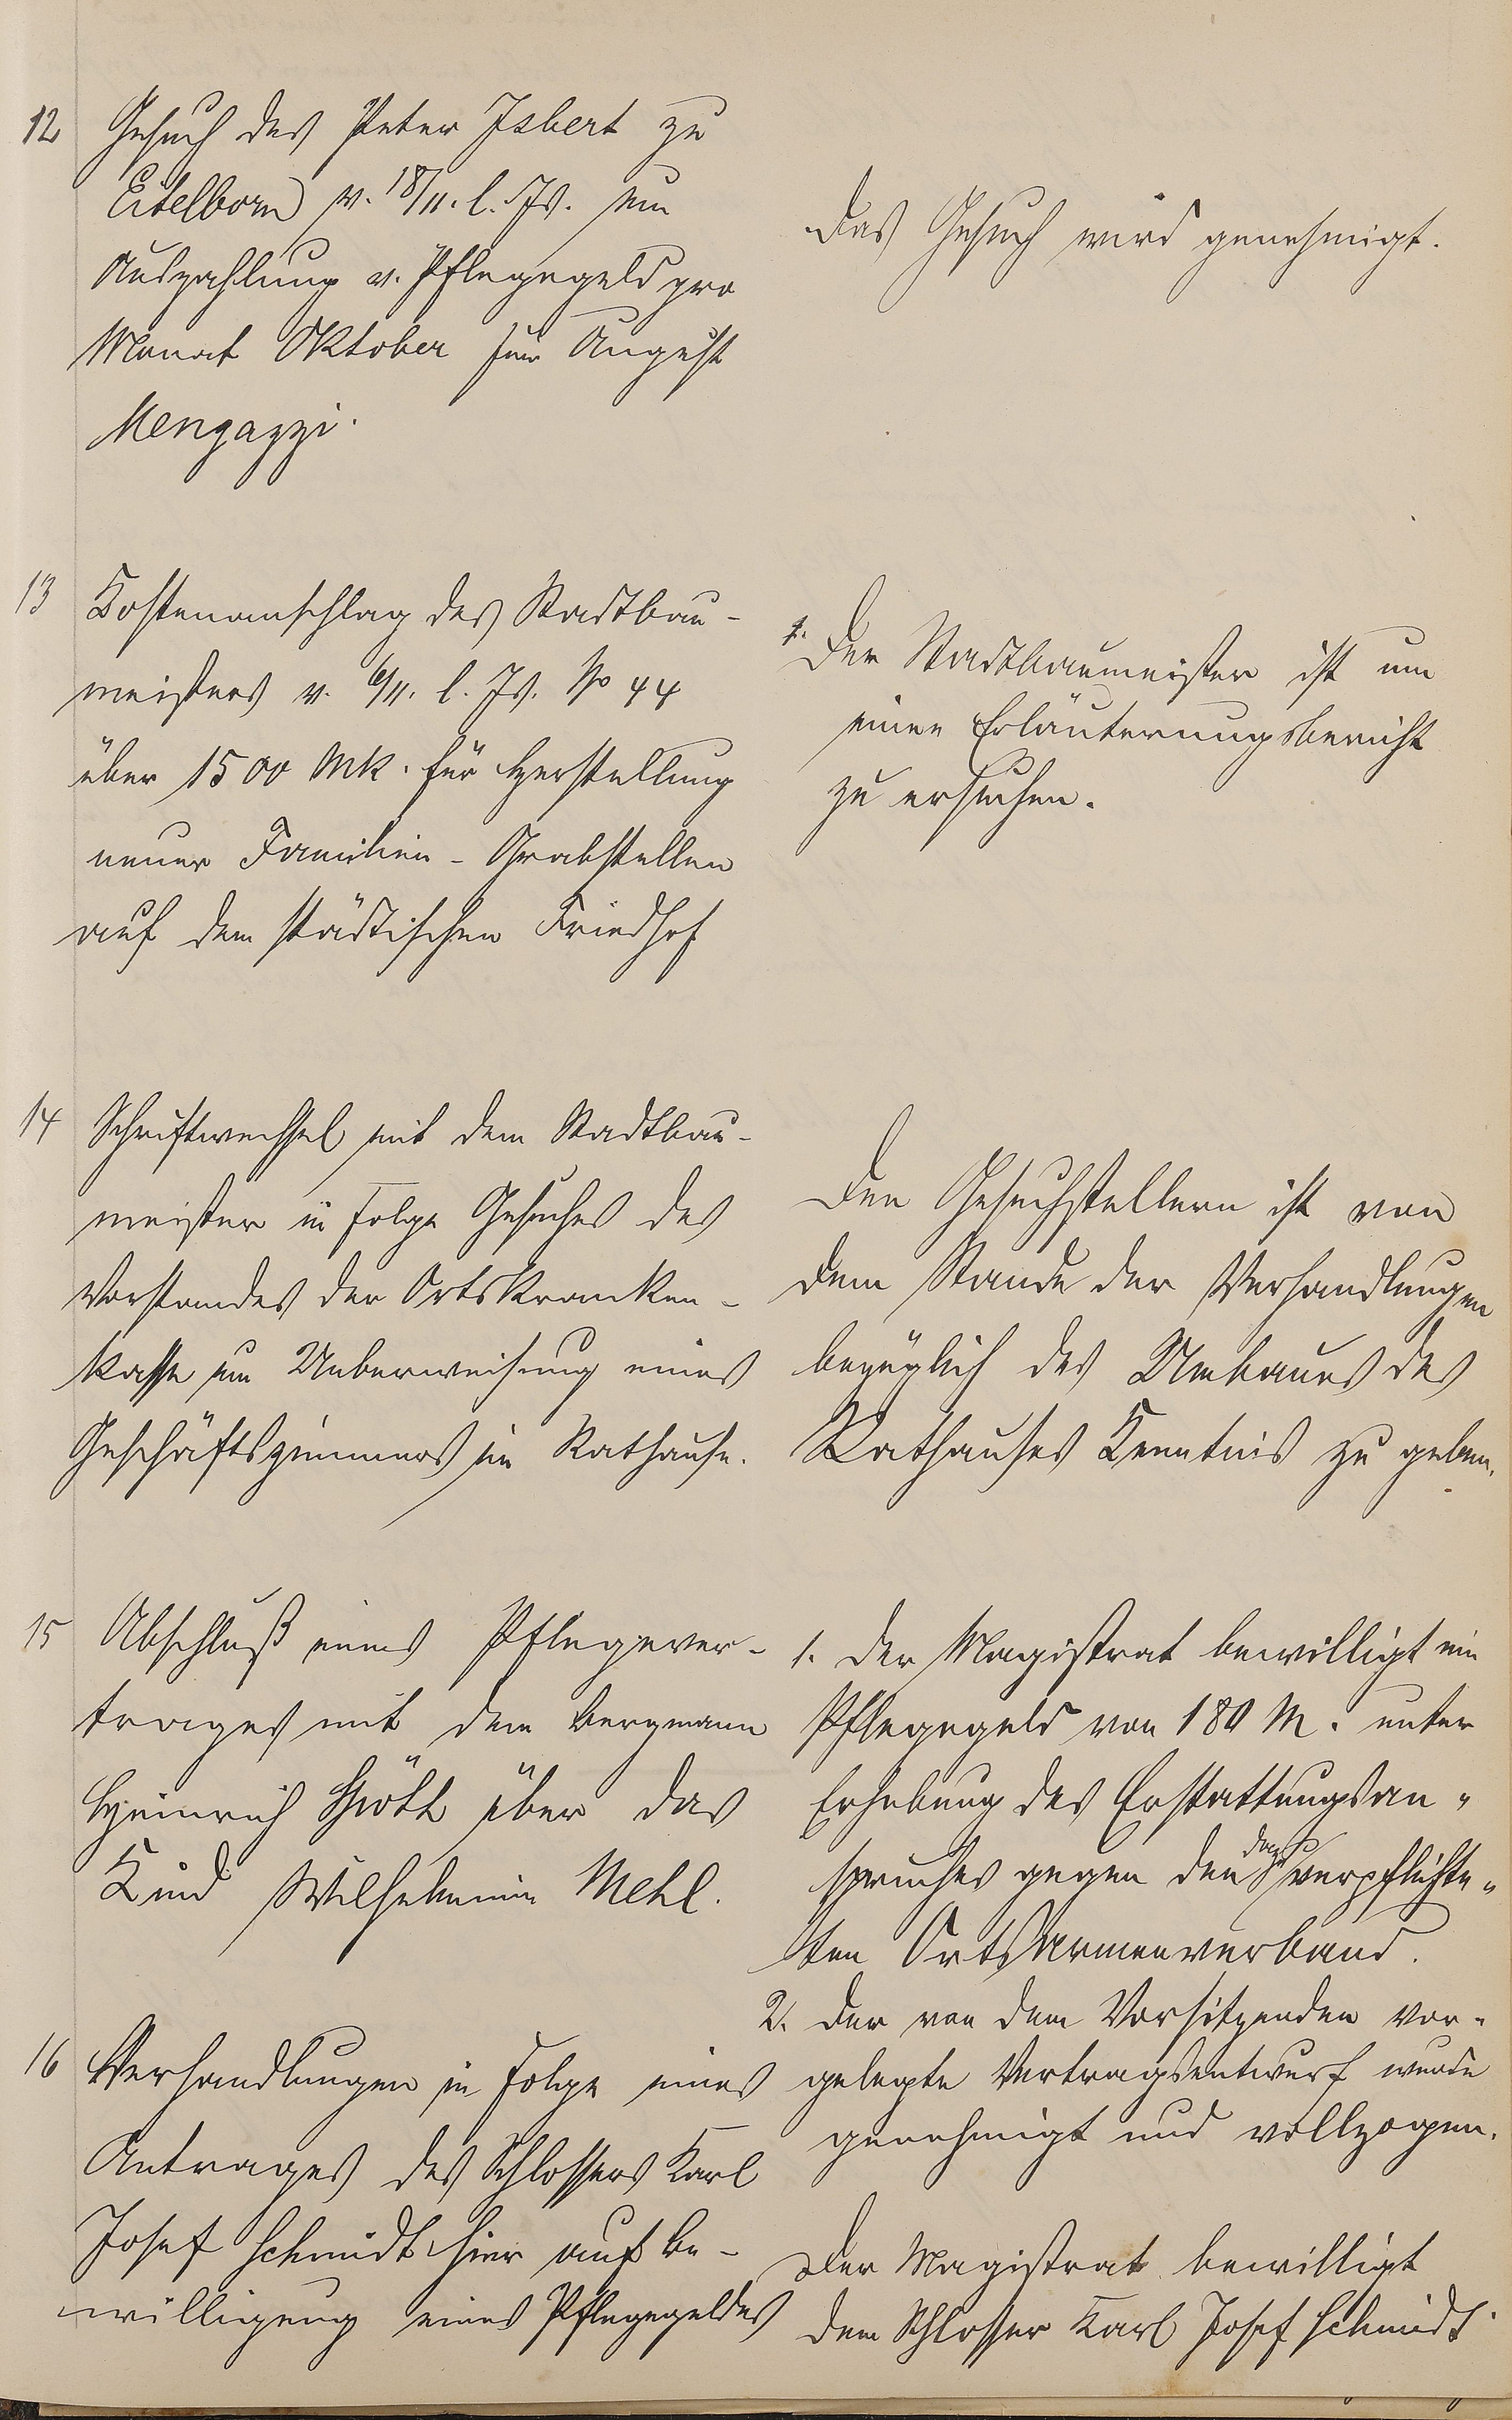 12 Gesuch des Peter Isbert zu
Eitelborn v. 18/11. l. Js. um
Auszahlung v. Pflegegeld pro
Monat Oktober für August
Mengazzi.
Das Gesuch wird genehmigt.
13 Kostenanschlag des Stadtbau-
meisters v. 6/11. l. Js. No 44
über 1500 Mk. für Herstellung
neuer Familien-Grabstellen
auf dem städtischen Friedhof
1. Der Stadtbaumeister ist um
einen Erläuterungsbericht
zu ersuchen.
14 Schriftwechsel mit dem Stadtbau-
meister in Folge Gesuches des
Vorstandes der Ortskranken-
kasse um Ueberweisung eines
Geschäftszimmers im Rathause.
Den Gesuchstellern ist von
dem Stande der Verhandlungen
bezüglich des Umbaues des
Rathauses Kenntnis zu geben.
15 Abschluß eines Pflegever-
trages mit dem Bergmann
Heinrich über das
Kind Wilhelmine Mehl.
1. Der Magistrat bewilligt ein
Pflegegeld von 180 M. unter
Erhebung des Erstattungsan-
spruches gegen den dazu verpflichte-
ten Ortsarmenverband.
2. Der von dem Vorsitzenden vor-
gelegte Vertragsentwurf wurde
genehmigt und vollzogen.
16 Verhandlungen in Folge eines
Antrages des Schlossers Karl
Josef Schmidt hier auf Be-
willigung eines Pflegegeldes
Der Magistrat bewilligt
dem Schlosser Karl Josef Schmidt